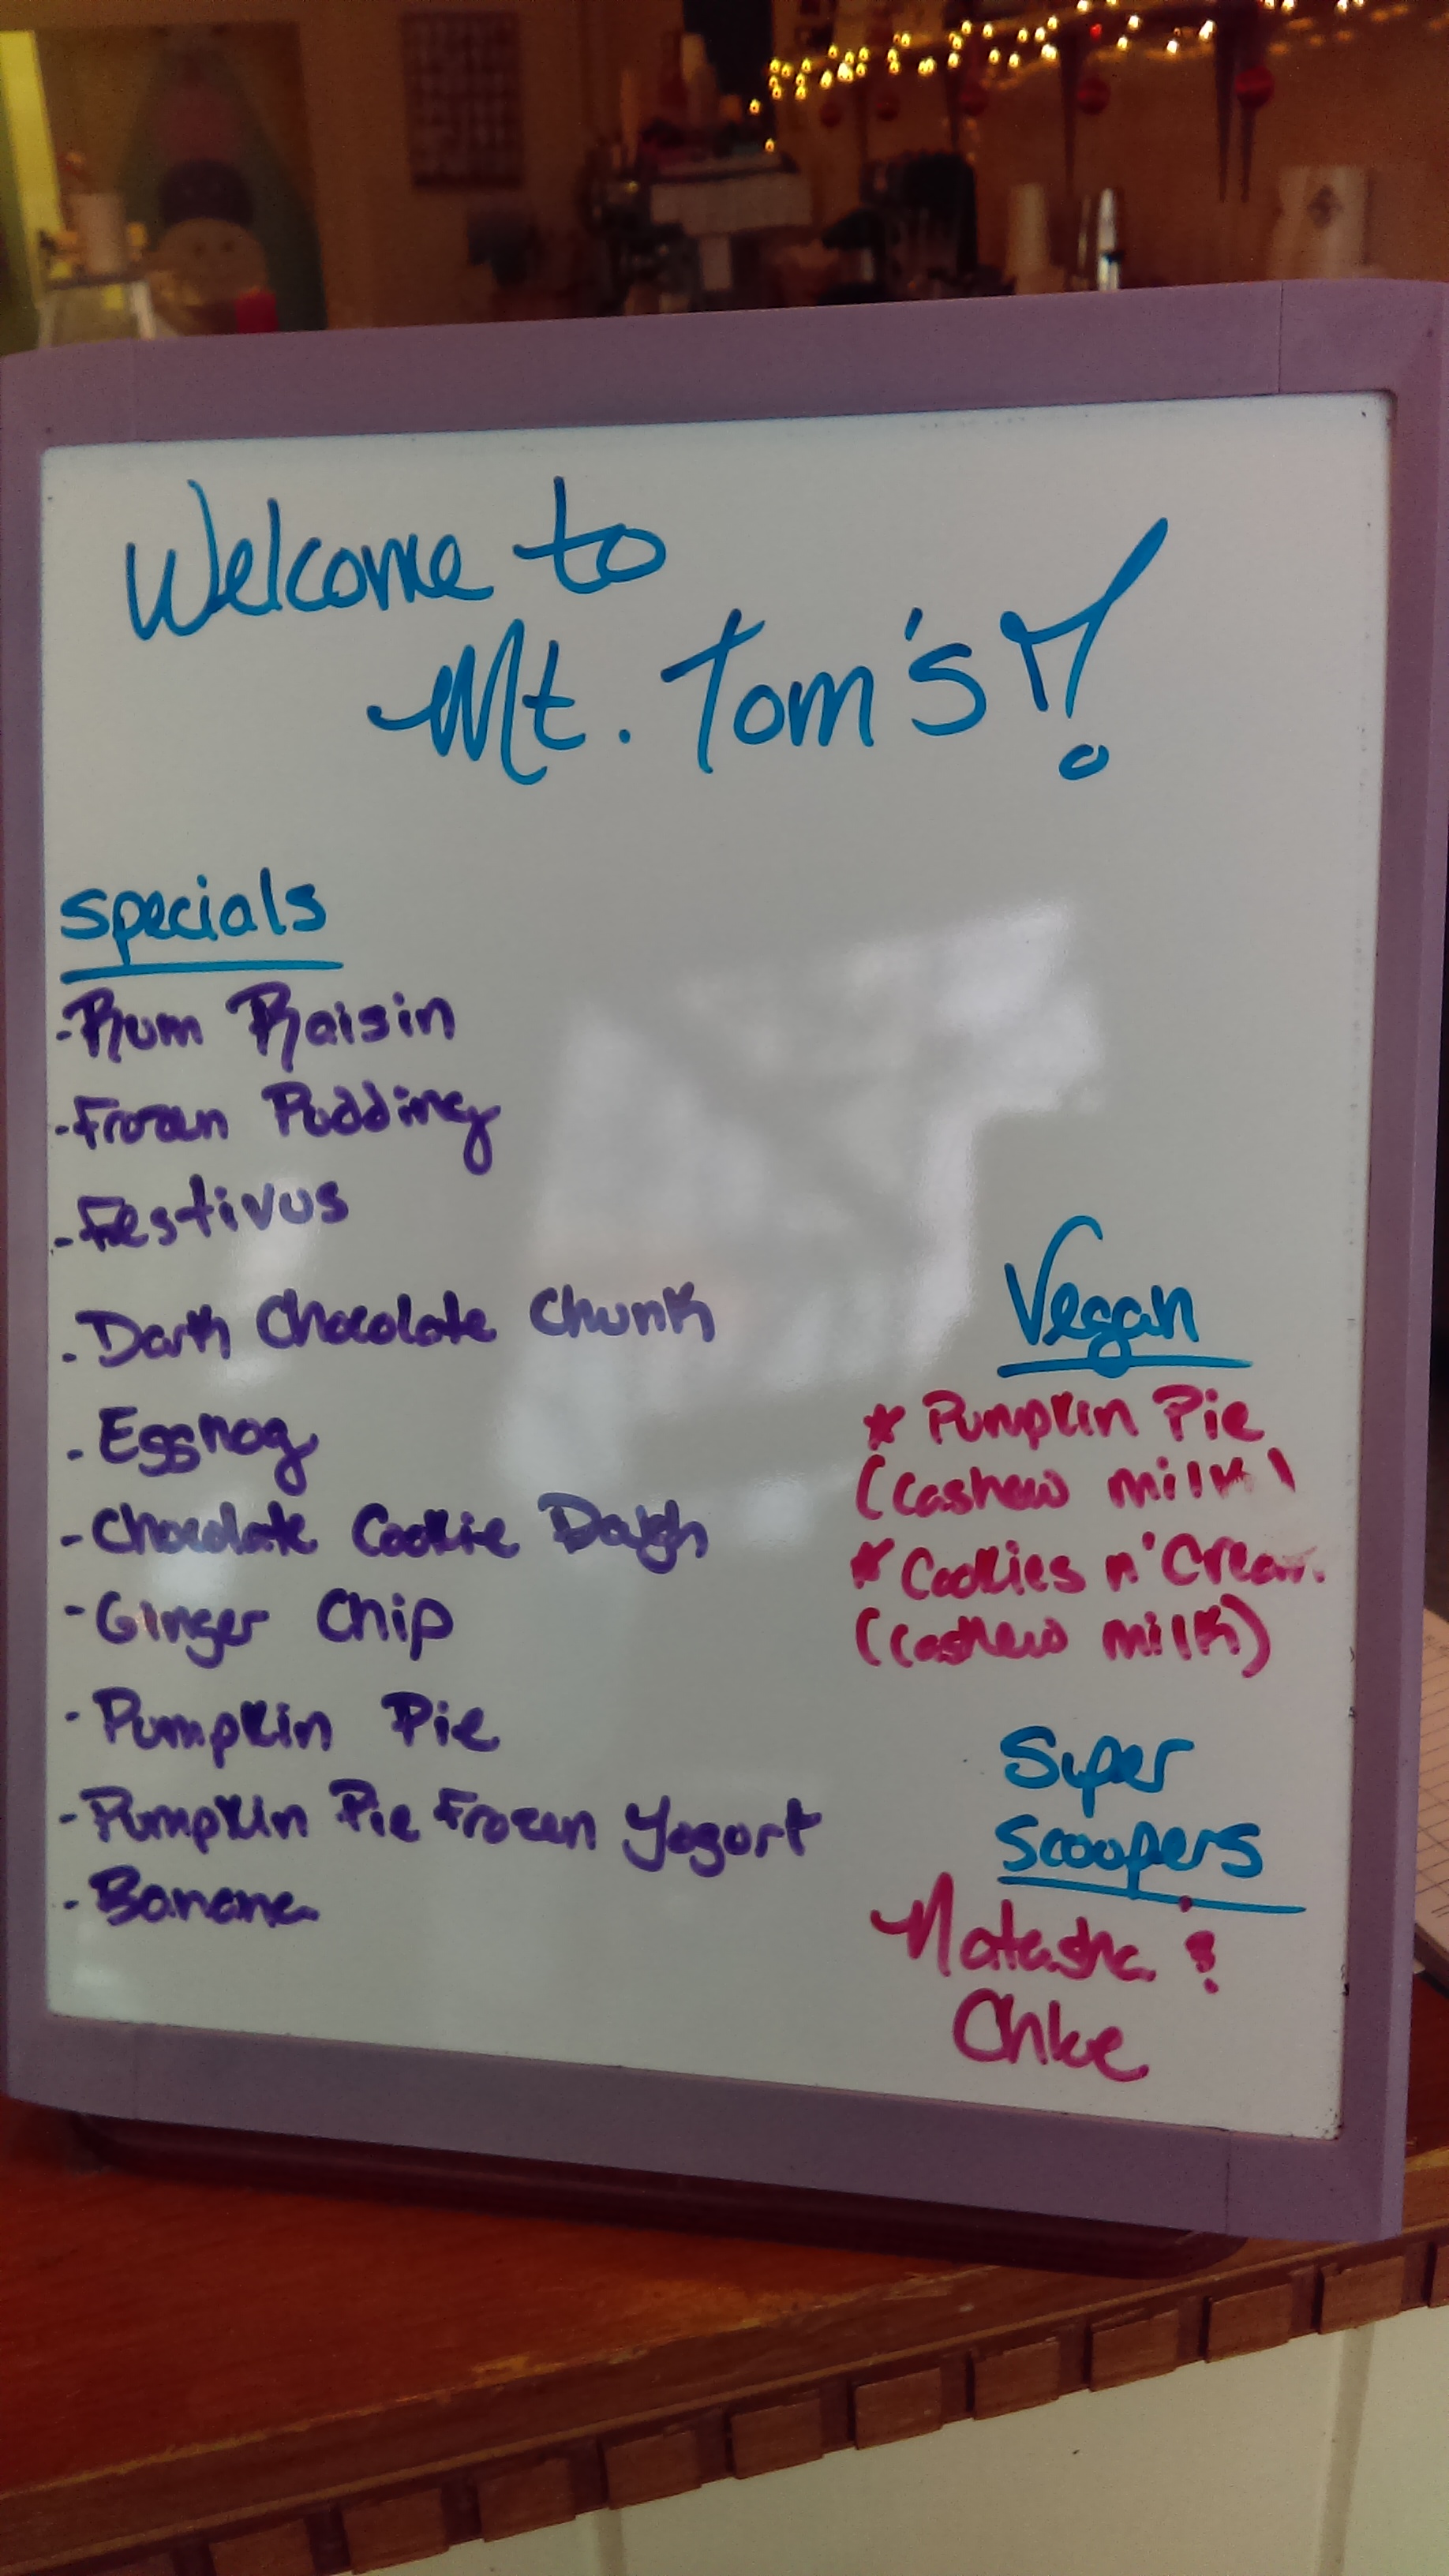 Welcome to
Mt. Tom's!
Specials
- Rum Raisin
- Frozen Pudding
- Festivus
- Dark Chocolate Chunk
- Eggnog
- Chocolate Cookie Dough
- Ginger Chip
- Pumpkin Pie
- Pumpkin Pie Frozen Yogurt
- Banana
Vegan
* Pumpkin Pie
(cashew milk)
* Cookies n' Cream
(cashew milk)
Super
Scoopers
Natasha &
Chloe